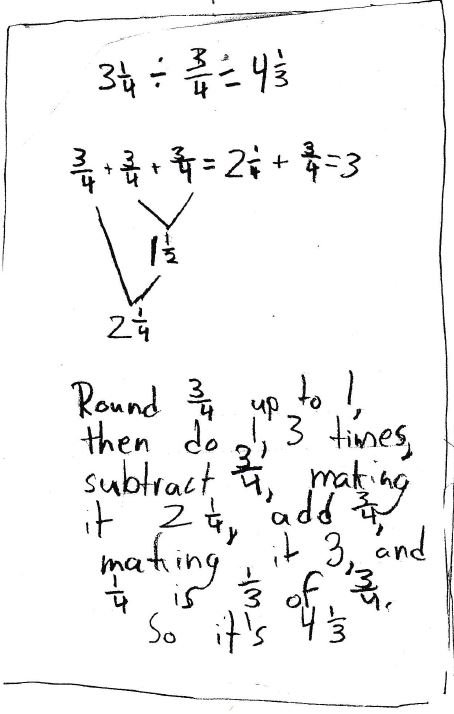 3 1/4 ÷ 3/4 = 4 1/3
3/4 + 3/4 + 3/4 = 2 1/4 + 3/4 = 3
1 1/2
2 1/4
Round 3/4 up to 1,
then do 1, 3 times,
subtract 3/4, making
it 2 1/4, add 3/4,
making it 3, and
1/4 is 1/3 of 3/4.
So it's 4 1/3